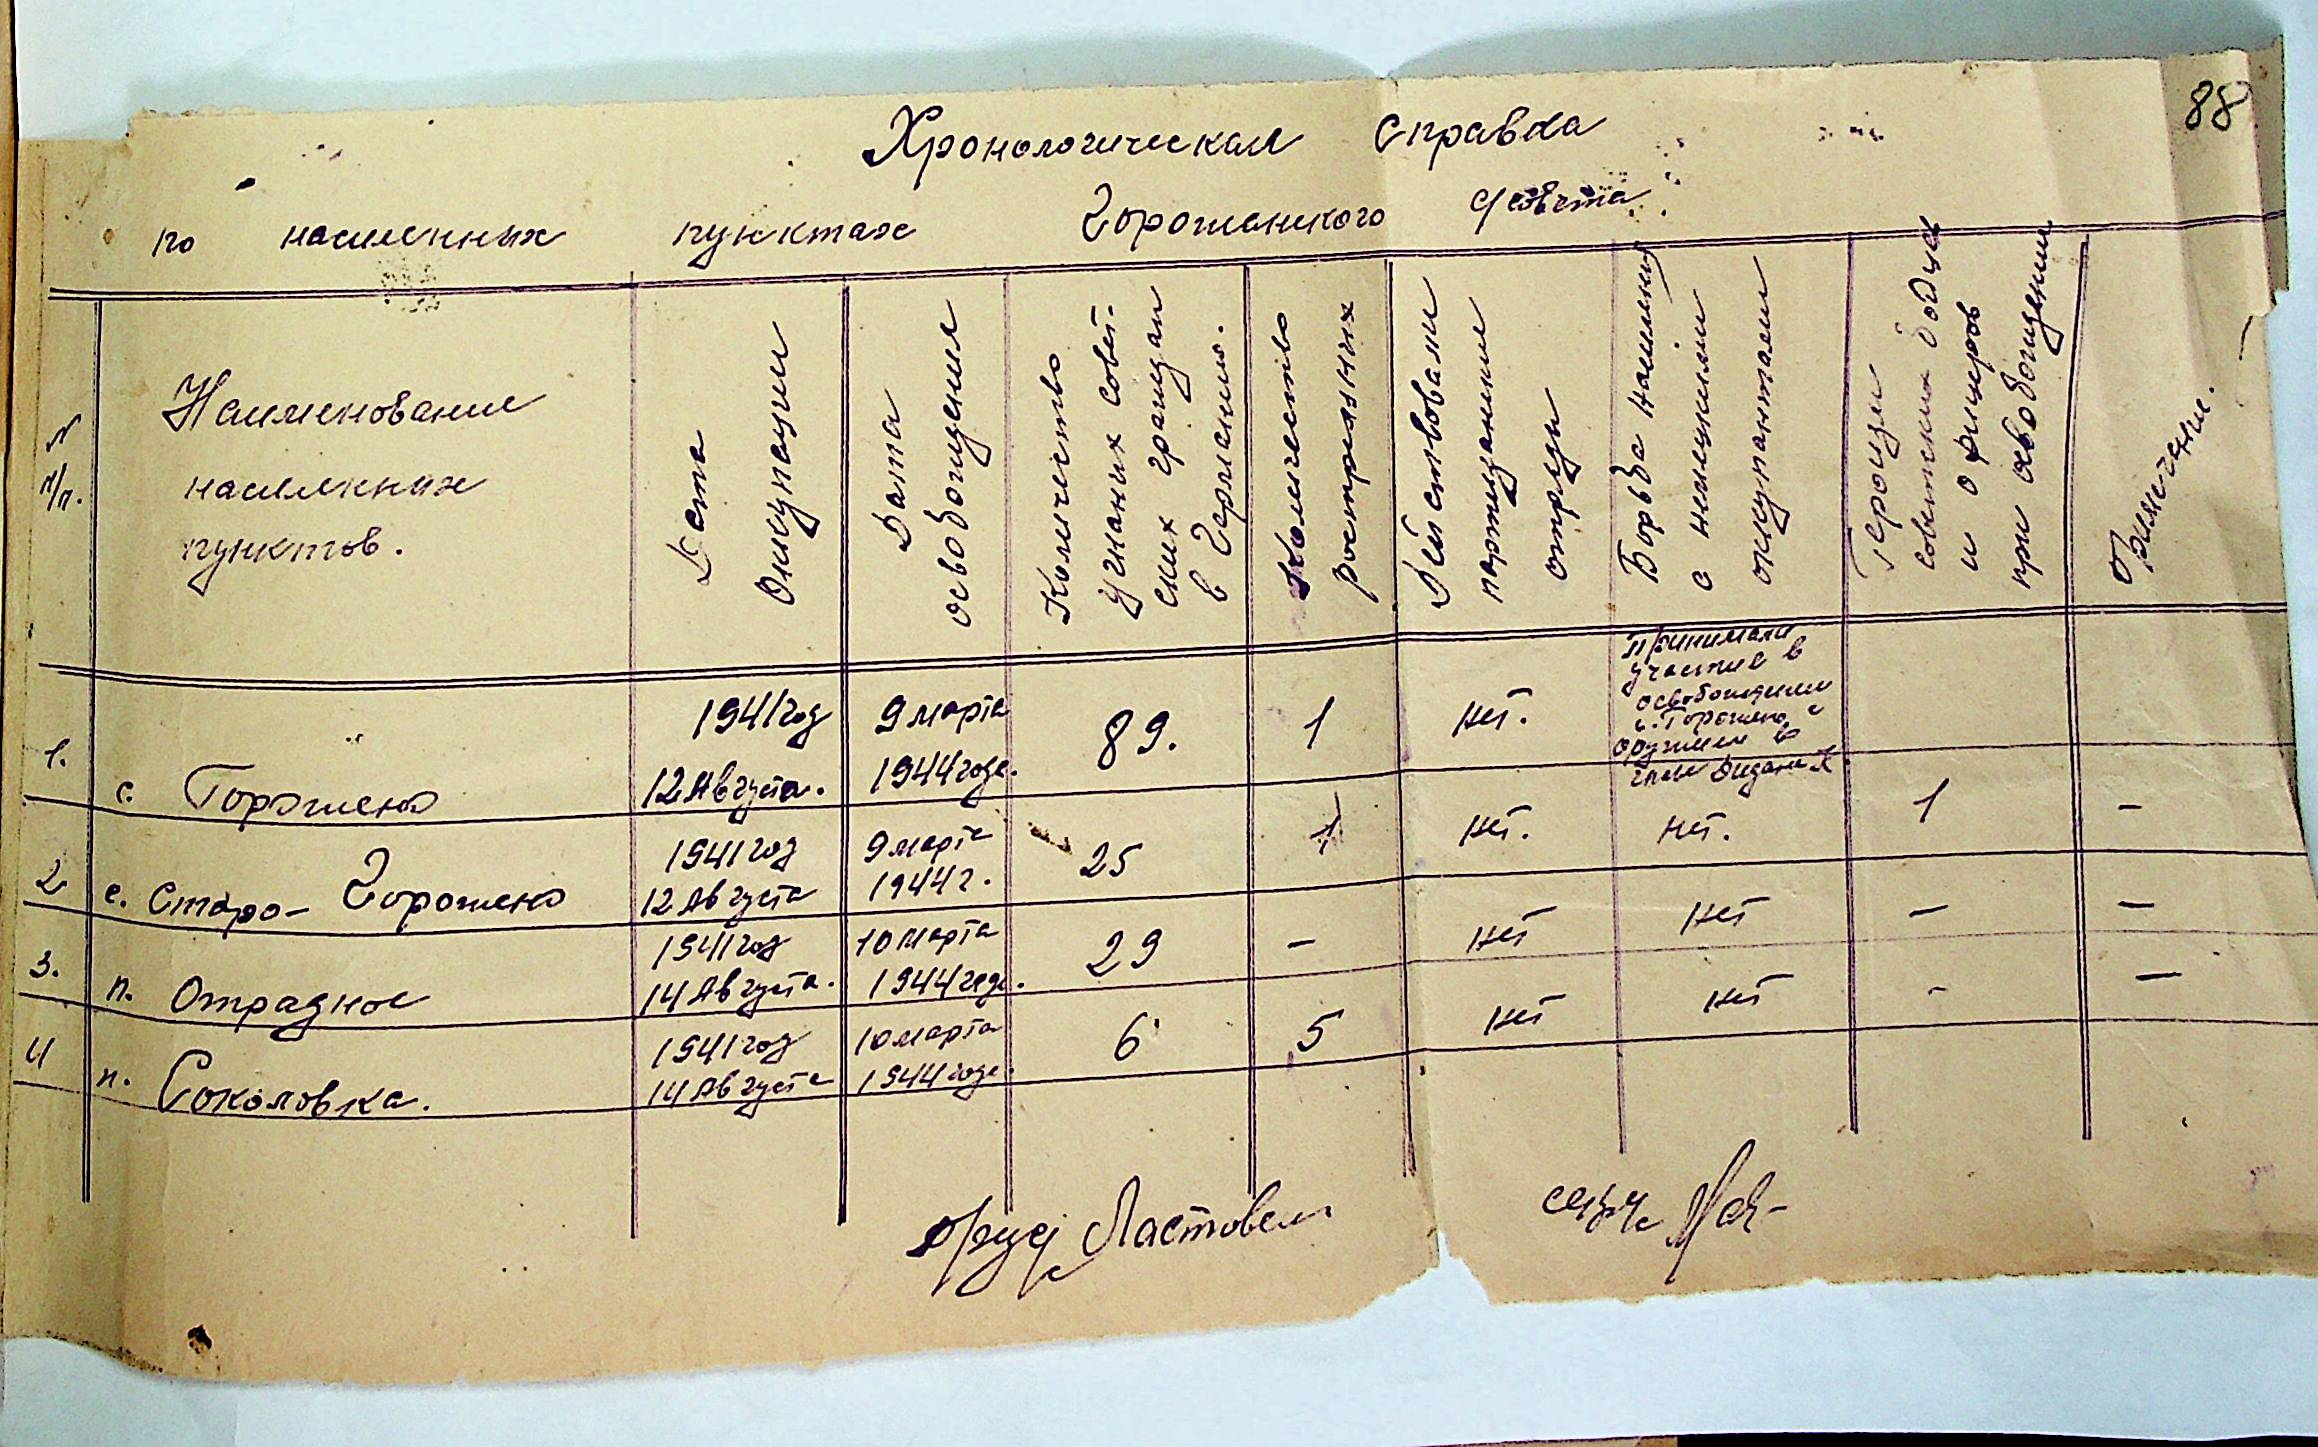 88
Хронологическая справка
по населенных пунктах Горожанского с/совета
№ п/п.
Наименование
населенных
пунктов.
Дата
Оккупации
Дата
освобождения
Количество
угнаных совет-
ских граждан
в Германию.
Количество
расстрелянных
Действовали
партизанские
отряды
Борьба населения
с немецкими
оккупантами
Героизм
советских бойцов
и офицеров
при освобождении
Примечание.
Принимали
участие в
освобождении
с. Горожено с
оружием в
1941 год 9 марта 89. 1 нет.
1. с. Горожено 12 Августа. 1944 года.
1941 год 9 марта 25 1 нет. нет. 1 –
2 с. Старо-Горожено 12 Августа 1944 г.
1941 год 10 марта 29 – нет нет – –
3. п. Отрадное 14 Августа. 1944 года.
1941 год 10 марта 6 5 нет нет - –
4 п. Соколовка. 14 Августа 1944 года.